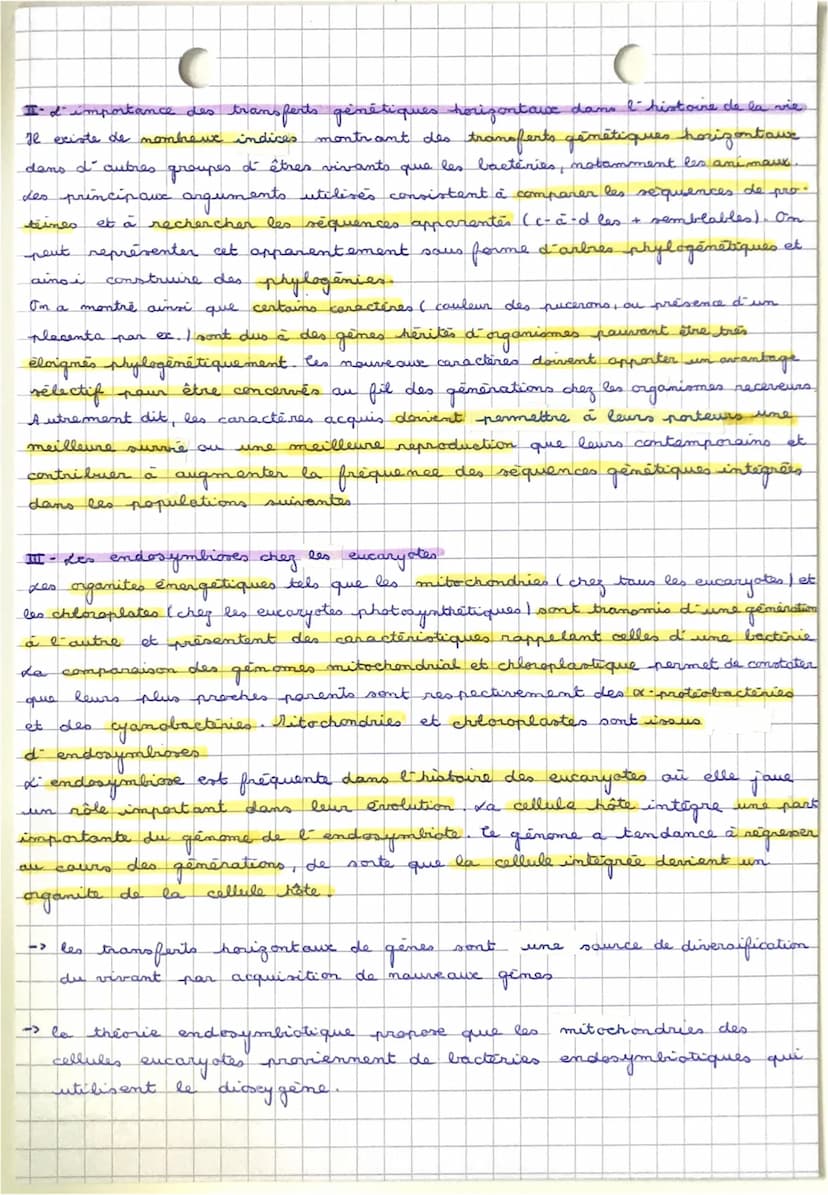 II- L'importance des transferts génétiques horizontaux dans l'histoire de la vie
Il existe de nombreux indices montrant des transferts génétiques horizontaux
dans d'autres groupes d'êtres vivants que les bactéries, notamment les animaux.
Les principaux arguments utilisés consistent à comparer les séquences de pro-
téines et à rechercher les séquences apparentés (c-à-d les + semblables). On
peut représenter cet apparentement sous forme d'arbres phylogénétiques et
ainsi construire des phylogénies.
On a montré ainsi que certains caractères (couleur des pucerons, ou présence d'un
placenta par ex.) sont dus à des gènes hérités d'organismes pouvant être très
éloignés phylogénétiquement. Ces nouveaux caractères doivent apporter un avantage
sélectif pour être concervés au fil des générations chez les organismes receveurs.
Autrement dit, les caractères acquis doivent permettre à leurs porteurs une
meilleure survie ou une meilleure reproduction que leurs contemporains et
contribuer à augmenter la fréquence des séquences génétiques intégrées
dans les populations suivantes
III- Les endosymbioses chez les eucaryotes
Les organites énergétiques tels que les mitochondries (chez tous les eucaryotes) et
les chloroplates (chez les eucaryotes photosynthétiques) sont transmis d'une génération
à l'autre et présentent des caractéristiques rappelant celles d'une bactérie
La comparaison des génomes mitochondrial et chloroplastique permet de constater
que leurs plus proches parents sont respectivement des α-protéobactéries
et des cyanobactéries. Mitochondries et chloroplastes sont issus
d'endosymbioses
L'endosymbiose est fréquente dans l'histoire des eucaryotes où elle joue
un rôle important dans leur évolution. La cellule hôte intègre une part
importante du génome de l'endosymbiote. Ce génome a tendance à régresser
au cours des générations, de sorte que la cellule intégrée devient un
organite de la cellule hôte.
-> les transferts horizontaux de gènes sont une source de diversification
du vivant par acquisition de nouveaux gènes
-> la théorie endosymbiotique propose que les mitochondries des
cellules eucaryotes proviennent de bactéries endosymbiotiques qui
utilisent le dioxygène.